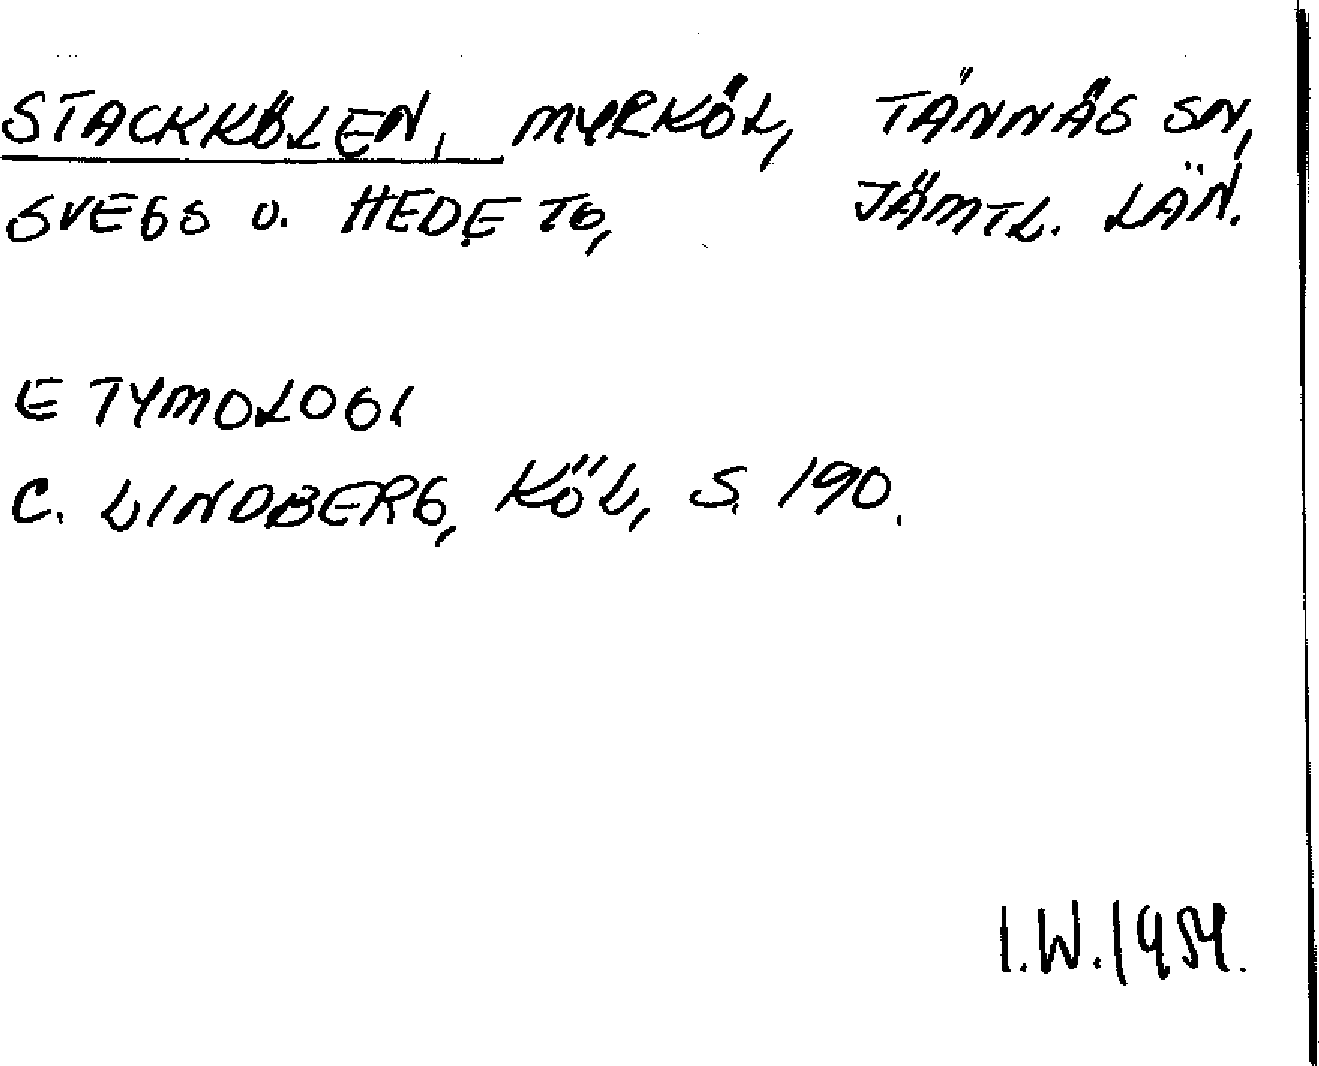 STACKKÖLEN, MYRKÖL, TÄNNÄS SN,
SVEGS O. HEDE TG, JÄMTL. LÄN.
ETYMOLOGI
C. LINDBERG, KÖL, S. 190.
I.W. 1954.